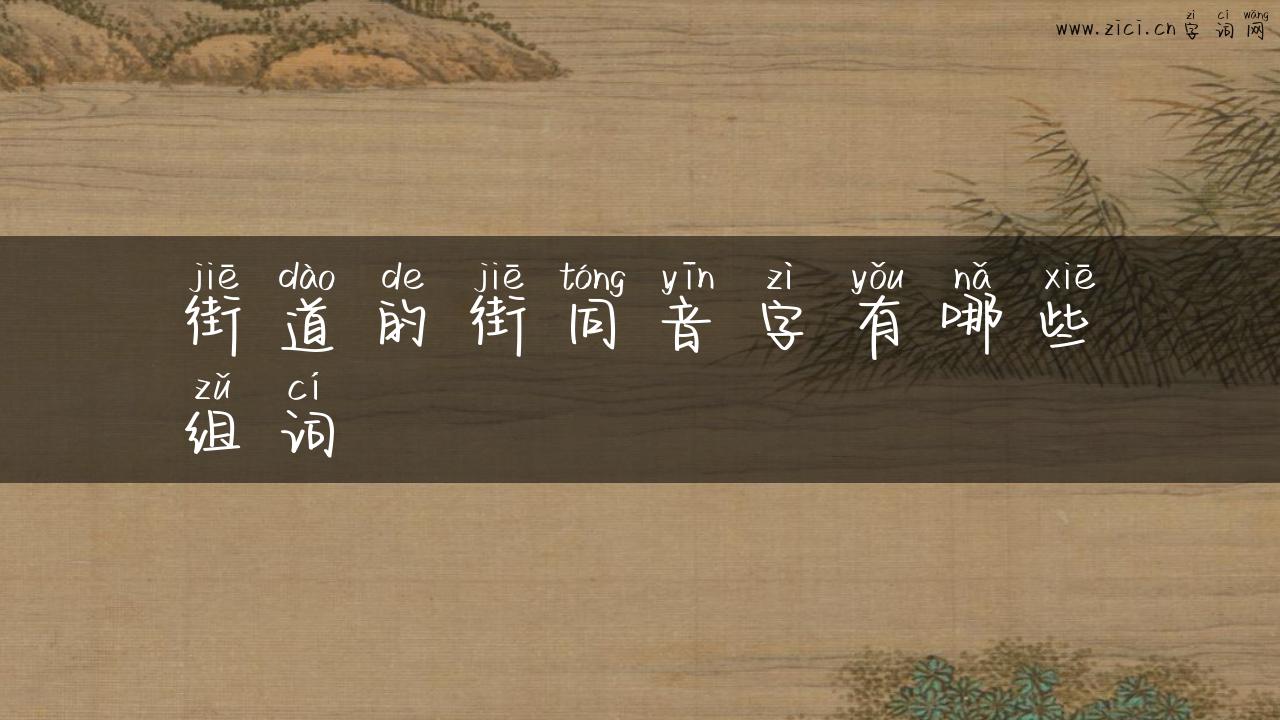 zì cí wǎng
www.zici.cn 字词网
jiē dào de jiē tóng yīn zì yǒu nǎ xiē
街道的街同音字有哪些
zǔ cí
组词